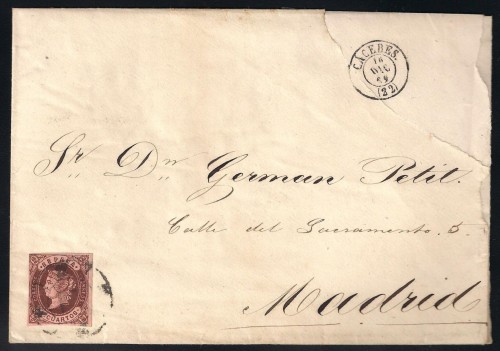 CÁCERES.
DIC
(22)
Sr. Dn. German Petit.
Calle del Sacramento. 5.
Madrid
ESPAÑA
CUARTOS